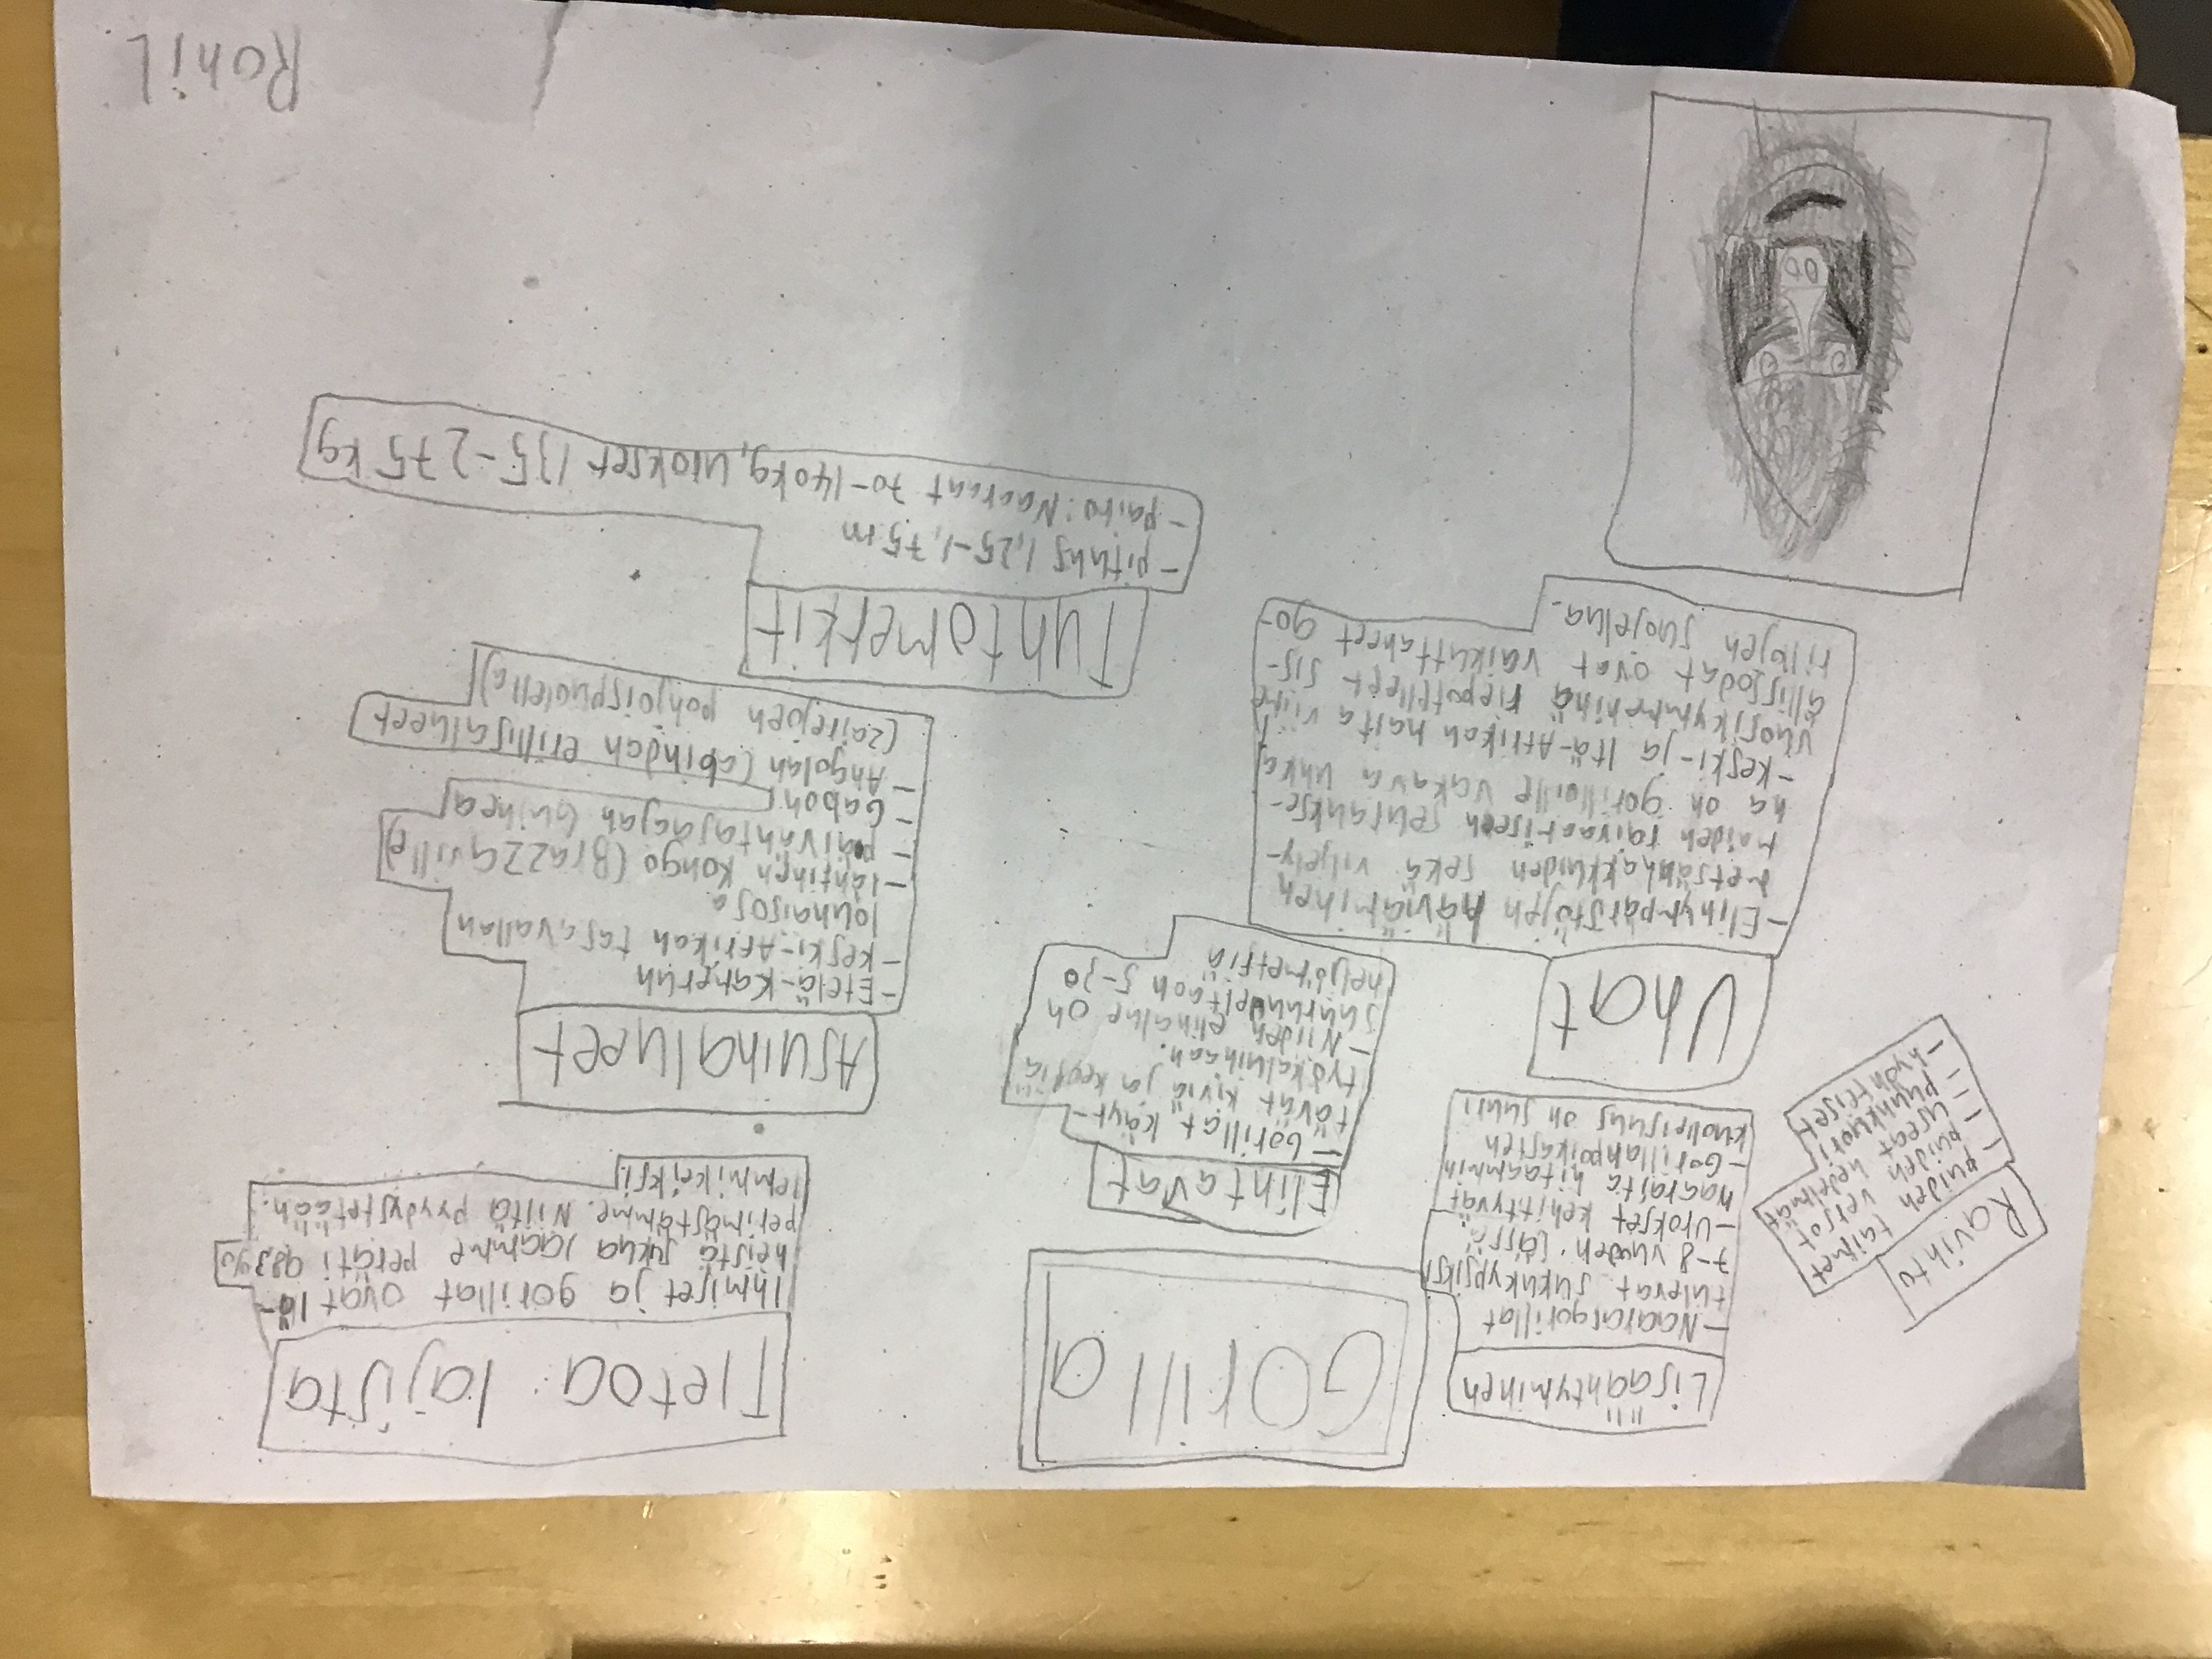 Ravinto
- puiden taimet
- puiden versot
- useat hedelmät
- puunkuori
- hyönteiset
Lisääntyminen
- Naarasgorillat
tulevat sukukypsiksi
7-8 vuoden iässä.
- Urokset kehittyvät
naaraita hitaammin
- Gorillanpoikasten
kuolleisuus on suuri
Gorilla
Tietoa lajista
Ihmiset ja gorillat ovat lä-
heistä sukua jaamme peräti 98%
perimästämme. Niitä pyydystetään
lemmikeiksi
Uhat
- Elinympäristöjen häviäminen
metsänhakkuiden sekä viljely-
maiden raivaamisen seuraukse-
na on gorilloille vakava uhka
- Keski- ja Itä-Afrikan halta viime
vuosikymmeninä riepotelleet sis-
ällissodat ovat vaikuttaneet go-
rillojen suojelua.
Elintavat
- Gorillat käyt-
tävät kiviä ja keppiä
työkaluinaan.
- Niiden elinalue on
suuruudeltaan 5-30
neljömetriä
Asuinalueet
- Etelä-Kamerun
- Keski-Afrikan tasavallan
lounaisosa
- läntinen Kongo (Brazzaville)
- päiväntasaajan Guinea
- Gabon
- Angolan Cabindan erillisalueet
(Zairejoen pohjoispuolella)
Tuntomerkit
- pituus 1,25-1,75 m
- paino: Naaraat 70-140kg, urokset 135-275 kg
Roni L